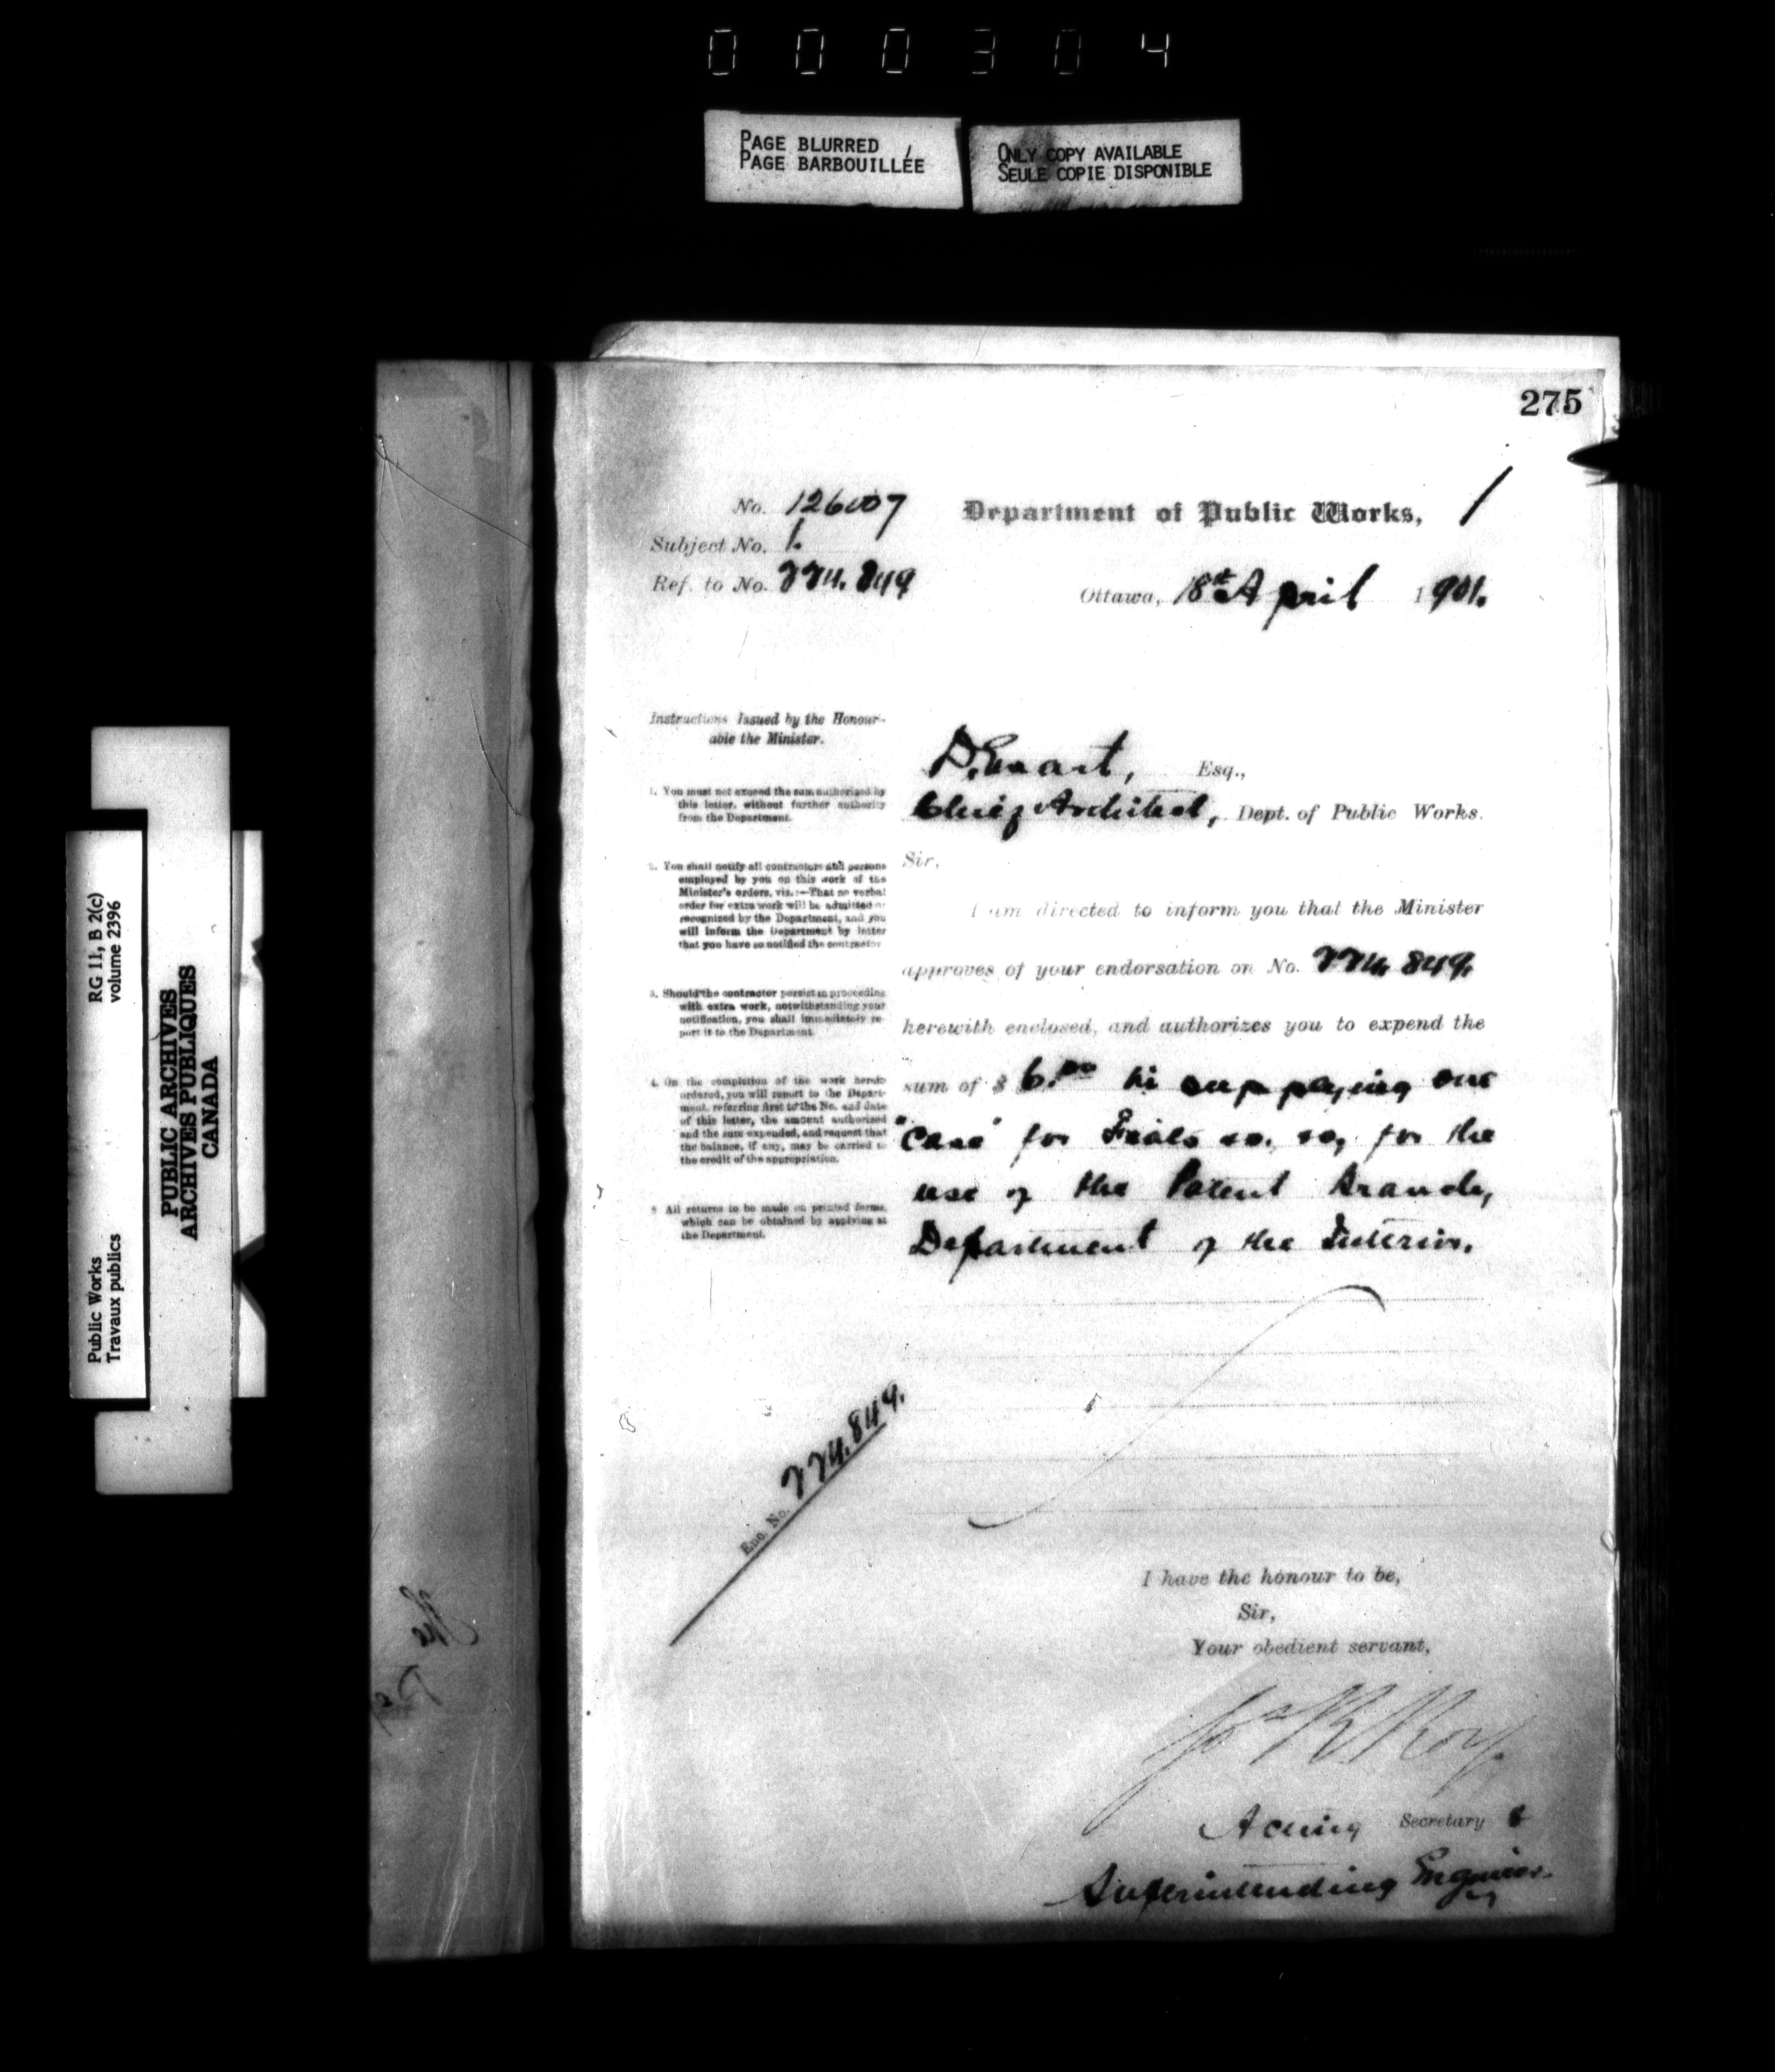 000304
PAGE BLURRED
PAGE BARBOUILLÉE
ONLY COPY AVAILABLE
SEULE COPIE DISPONIBLE
275
No. 126007
Subject No. 1.
Ref. to No. 224.849
Department of Public Works, 1
Ottawa, 18th April 1901.
Instructions Issued by the Honour-
able the Minister.
1. You must not exceed the sum authorized by
this letter, without further authority
from the Department.
2. You shall notify all contractors and persons
employed by you on this work of the
Minister's orders, viz.:—That no verbal
order for extra work will be admitted or
recognized by the Department, and you
will inform the Department by letter
that you have so notified the contractor
3. Should the contractor persist in proceeding
with extra work, notwithstanding your
notification, you shall immediately re-
port it to the Department.
4. On the completion of the work herein
ordered, you will report to the Depart-
ment, referring first to the No. and date
of this letter, the amount authorized
and the sum expended, and request that
the balance, if any, may be carried to
the credit of the appropriation.
5. All returns to be made on printed forms,
which can be obtained by applying at
the Department.
D. Ewart, Esq.,
Chief Architect, Dept. of Public Works.
Sir,
I am directed to inform you that the Minister
approves of your endorsation on No. 224.849.
herewith enclosed, and authorizes you to expend the
sum of $ 6.00 in supplying one
"case" for for the
use of the Patent Branch,
Department of the Interior.
Enc. No. 224.849.
I have the honour to be,
Sir,
Your obedient servant,
Jos R Roy
Acting Secretary &
Superintending Engineer.
Public Works
Travaux publics
RG 11, B 2(c)
volume 2396
PUBLIC ARCHIVES
ARCHIVES PUBLIQUES
CANADA